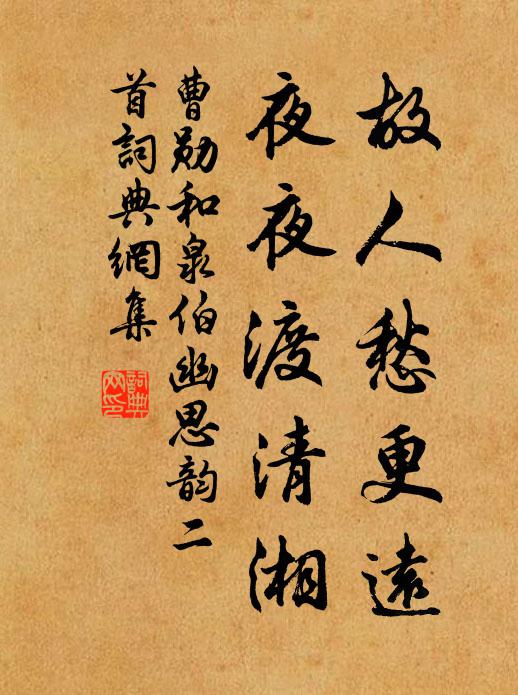 故人愁更遠
夜夜渡清湘
曹勛和泉伯幽思韵二
首詞典網集
詞典
网印